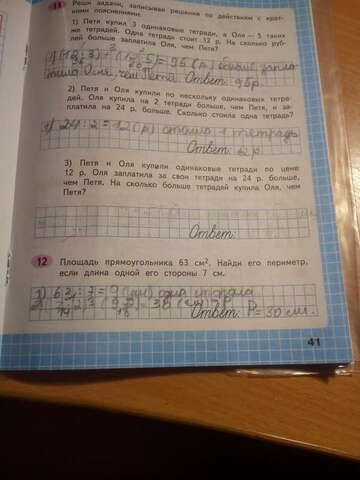 11 Реши задачи, записывая решения по действиям с крат-
кими пояснениями.
1) Петя купил 3 одинаковые тетради, а Оля — 5 таких
же тетрадей. Одна тетрадь стоит 12 р. На сколько руб-
лей больше заплатила Оля, чем Петя?
Оля чем Петя. Ответ: 95р.
2) Петя и Оля купили по нескольку одинаковых тетра-
дей. Оля купила на 2 тетради больше, чем Петя, и за-
платила на 24 р. больше. Сколько стоила одна тетрадь?
1) 24:2=12(р) стоила 1 тетрадь
Ответ: 12 р.
3) Петя и Оля купили одинаковые тетради по цене
12 р. Оля заплатила за свои тетради на 24 р. больше,
чем Петя. На сколько больше тетрадей купила Оля, чем
Петя?
Ответ:
12 Площадь прямоугольника 63 см². Найди его периметр,
если длина одной его стороны 7 см.
1) 63:7=9 (см)
Ответ: P=30 см.
41